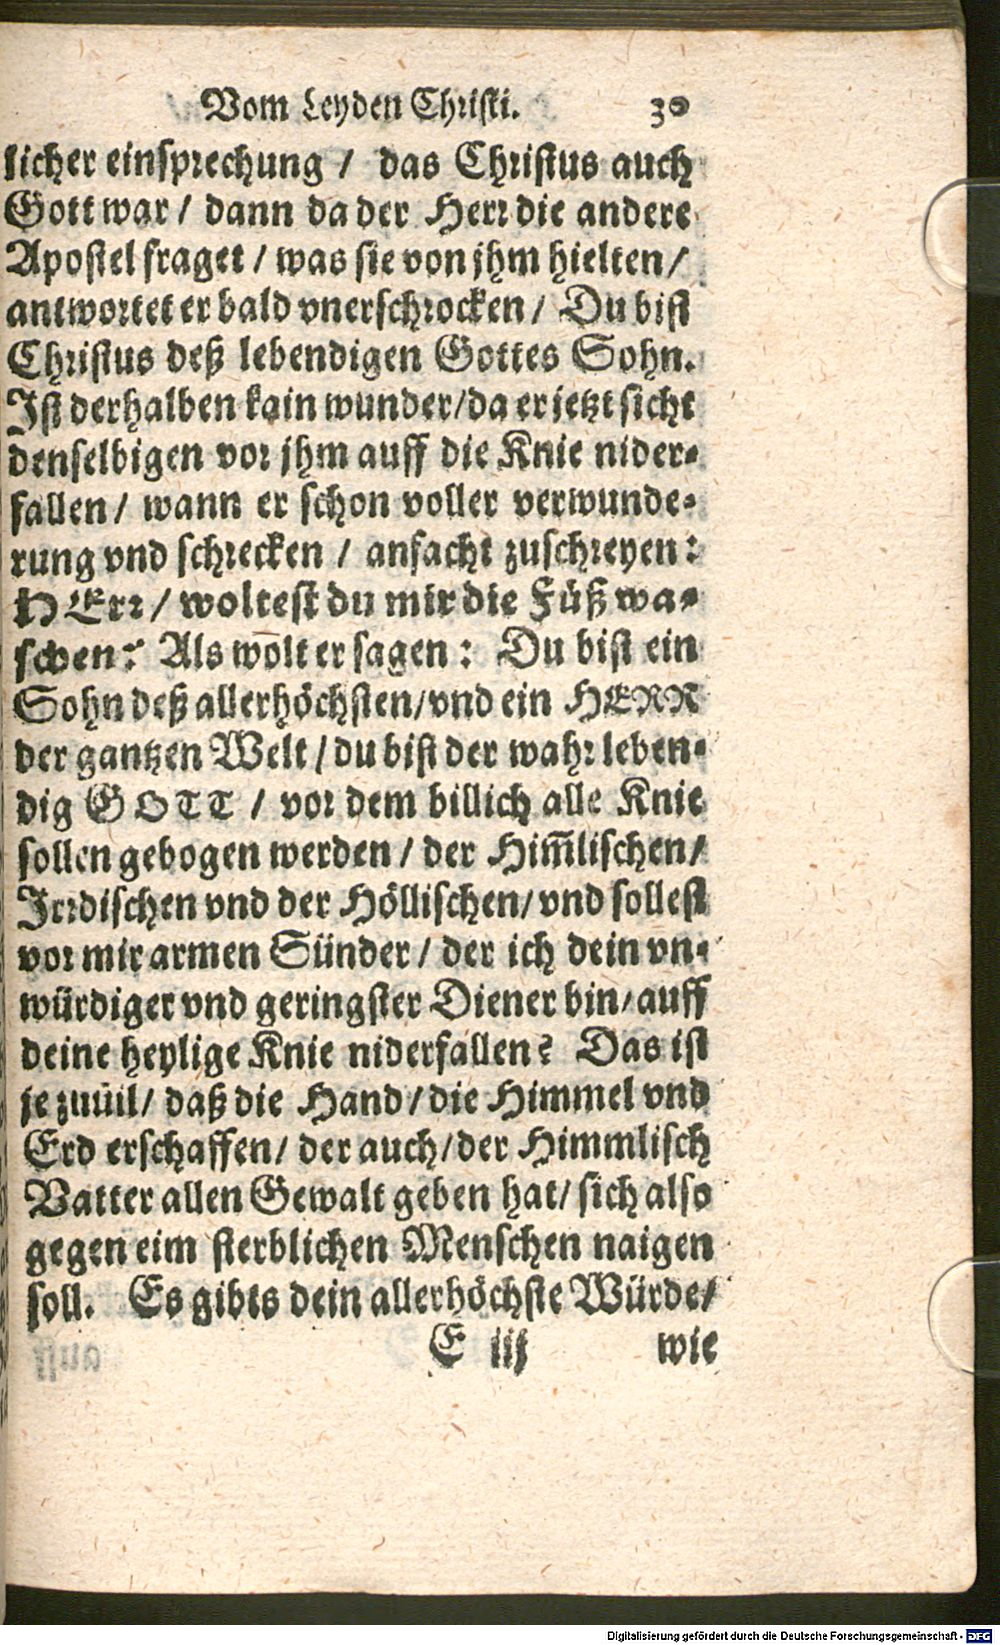 Vom Leyden Christi. 30
licher einsprechung / das Christus auch
Gott war / dann da der Herr die andere
Apostel fraget / was sie von jhm hielten /
antwortet er bald vnerschrocken / Du bist
Christus deß lebendigen Gottes Sohn.
Ist derhalben kain wunder / da er jetzt sicht
denselbigen vor jhm auff die Knie nider-
fallen / wann er schon voller verwunde-
rung vnd schrecken / anfacht zuschreyen:
HErr / woltest du mir die Füß wa-
schen? Als wolt er sagen: Du bist ein
Sohn deß allerhöchsten / vnd ein HERR
der gantzen Welt / du bist der wahr leben-
dig GOTT / vor dem billich alle Knie
sollen gebogen werden / der Him̃lischen /
Irrdischen vnd der Höllischen / vnd sollest
vor mir armen Sünder / der ich dein vn-
würdiger vnd geringster Diener bin / auff
deine heylige Knie niderfallen? Das ist
je zuuil / daß die Hand / die Himmel vnd
Erd erschaffen / der auch / der Himmlisch
Vatter allen Gewalt geben hat / sich also
gegen eim sterblichen Menschen naigen
soll. Es gibts dein allerhöchste Würde /
E iij wie
Digitalisierung gefördert durch die Deutsche Forschungsgemeinschaft - DFG